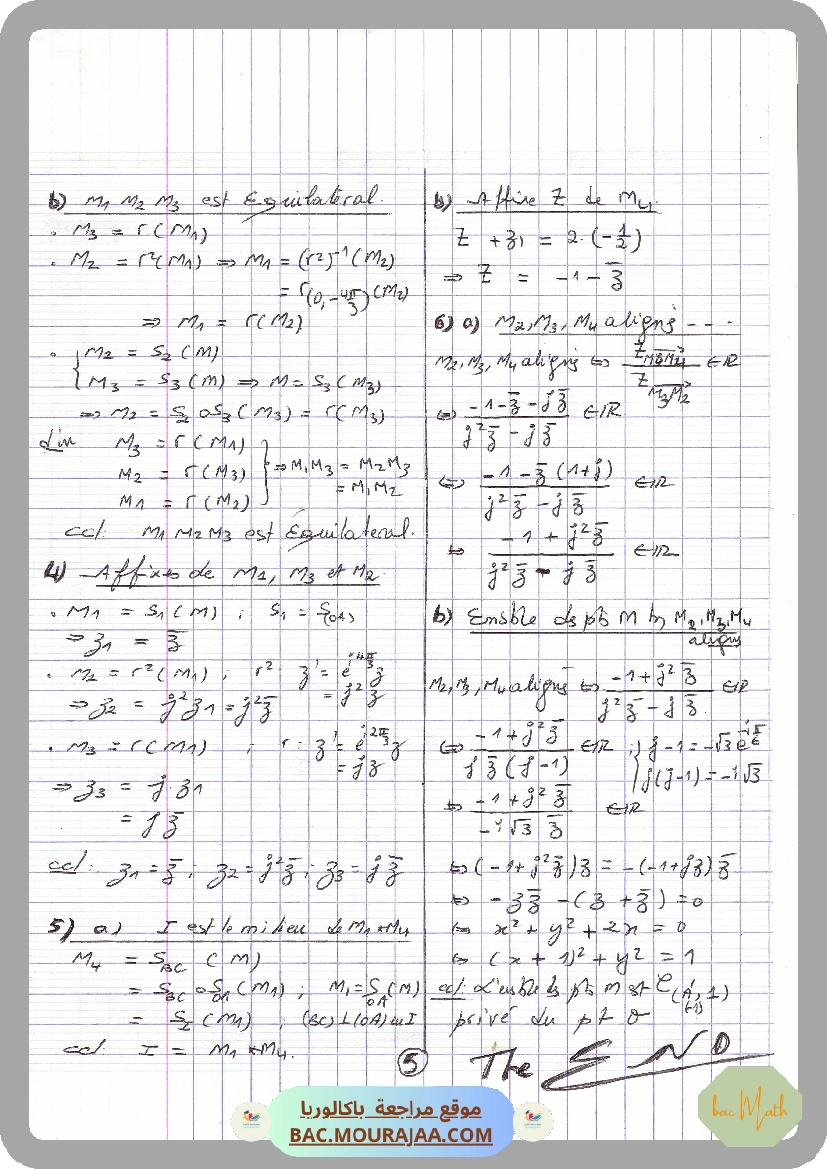 b) M1 M2 M3 est Equilateral.
. M3 = r(M1)
. M2 = r²(M1) ⇒ M1 = (r²)⁻¹(M2)
= r(0, -4π/3)(M2)
⇒ M1 = r(M2)
. { M2 = S2(M)
M3 = S3(M) ⇒ M = S3(M3)
⇒ M2 = S2 o S3(M3) = r(M3)
M3 = r(M1)
M2 = r(M3) } ⇒ M1M3 = M2M3
M1 = r(M2) = M1M2
ccl. M1 M2 M3 est Equilateral.
4) Affixes de M1, M3 et M2
. M1 = S1(M) ; S1 = S(OA)
⇒ z1 = z̄
. M2 = r²(M1) ; r² : z' = e^(i4π/3) z
= j² z
⇒ z2 = j² z1 = j² z̄
. M3 = r(M1) ; r : z' = e^(i2π/3) z
= jz
⇒ z3 = j . z1
= j z̄
ccl. z1 = z̄ ; z2 = j² z̄ ; z3 = j z̄
5) a) I est le milieu de M1 * M4
M4 = S_BC (M)
= S_BC o S_OA (M1) ; M1 = S_OA (M)
= S_I (M1) ; (BC) ⊥ (OA) en I
ccl I = M1 * M4.
b) Affixe Z de M4.
Z + z1 = 2.(-1/2)
⇒ Z = -1 - z̄
6) a) M2, M3, M4 aligns - - .
M2, M3, M4 aligns ⇔ Z_M3M4 / Z_M3M2 ∈ IR
⇔ (-1 - z̄ - j z̄) / (j² z̄ - j z̄) ∈ IR
⇔ (-1 - z̄ (1+j)) / (j² z̄ - j z̄) ∈ IR
⇔ (-1 + j² z̄) / (j² z̄ - j z̄) ∈ IR
b) Ensble des pts M tq M2, M3, M4
aligns
M2, M3, M4 aligns ⇔ (-1 + j² z̄) / (j² z̄ - j z̄) ∈ IR
⇔ (-1 + j² z̄) / (j z̄ (j-1)) ∈ IR ; { j - 1 = -√3 e^(-iπ/6)
j(j-1) = -i√3
⇔ (-1 + j² z̄) / (-i√3 z̄) ∈ IR
⇔ (-1 + j² z̄) z = -(-1 + jz) z̄
⇔ - z z̄ - (z + z̄) = 0
⇔ x² + y² + 2x = 0
⇔ (x + 1)² + y² = 1
ccl. L'ensble des pts M est C(A', 1)
(-1)
privé du pt O
5
The END
موقع مراجعة باكالوريا
BAC.MOURAJAA.COM
bac Math